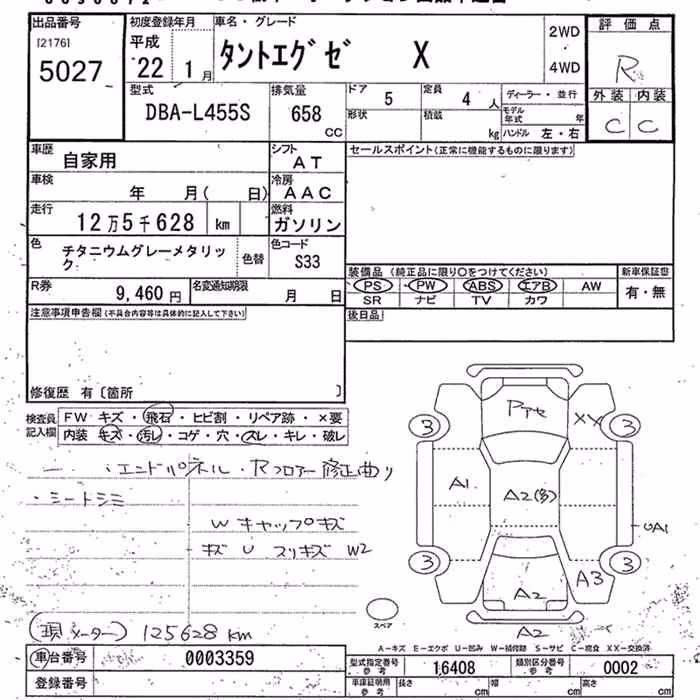 出品番号 初度登録年月 車名・グレード 評価点
[2176]
5027
平成 22 年 1 月
タントエグゼ X
2WD
4WD
R
外装 内装
C C
型式 排気量 ドア 定員 ディーラー・並行
DBA-L455S 658 CC 5 4 人
形状 積載 kg モデル年式 年
ハンドル 左・右
車歴 自家用 シフト AT
セールスポイント(正常に機能するものに限ります)
車検 年 月( 日) 冷房 AAC
走行 12万5千628 km 燃料 ガソリン
色 チタニウムグレーメタリック 色替 色コード S33
R券 9,460 円 名変通知期限 月 日
装備品 (純正品に限り○をつけてください) 新車保証書
PS PW ABS エアB AW 有・無
SR ナビ TV カワ
後日品
注意事項申告欄(不具合内容等は具体的に記入して下さい)
修復歴 有〔箇所 〕
検査員記入欄
FW キズ・飛石・ヒビ割・リペア跡・×要
内装 キズ・汚レ・コゲ・穴・スレ・キレ・破レ
・エンドパネル・Rフロアー修正曲り
・シートシミ
W キャップキズ
キズ U スリキズ W2
(現メーター) 125628 km
Pアセ
XX
3 3
A1
A2(多)
UA1
3 3
A2
A3
A2
スペア
A-キズ E-エクボ U-凹み W-補修跡 S-サビ C-腐食 XX-交換済
車台番号 0003359
型式指定番号 参考 16408 類別区分番号 参考 0002
登録番号
車庫証明用 参考 長さ cm 幅 cm 高さ cm